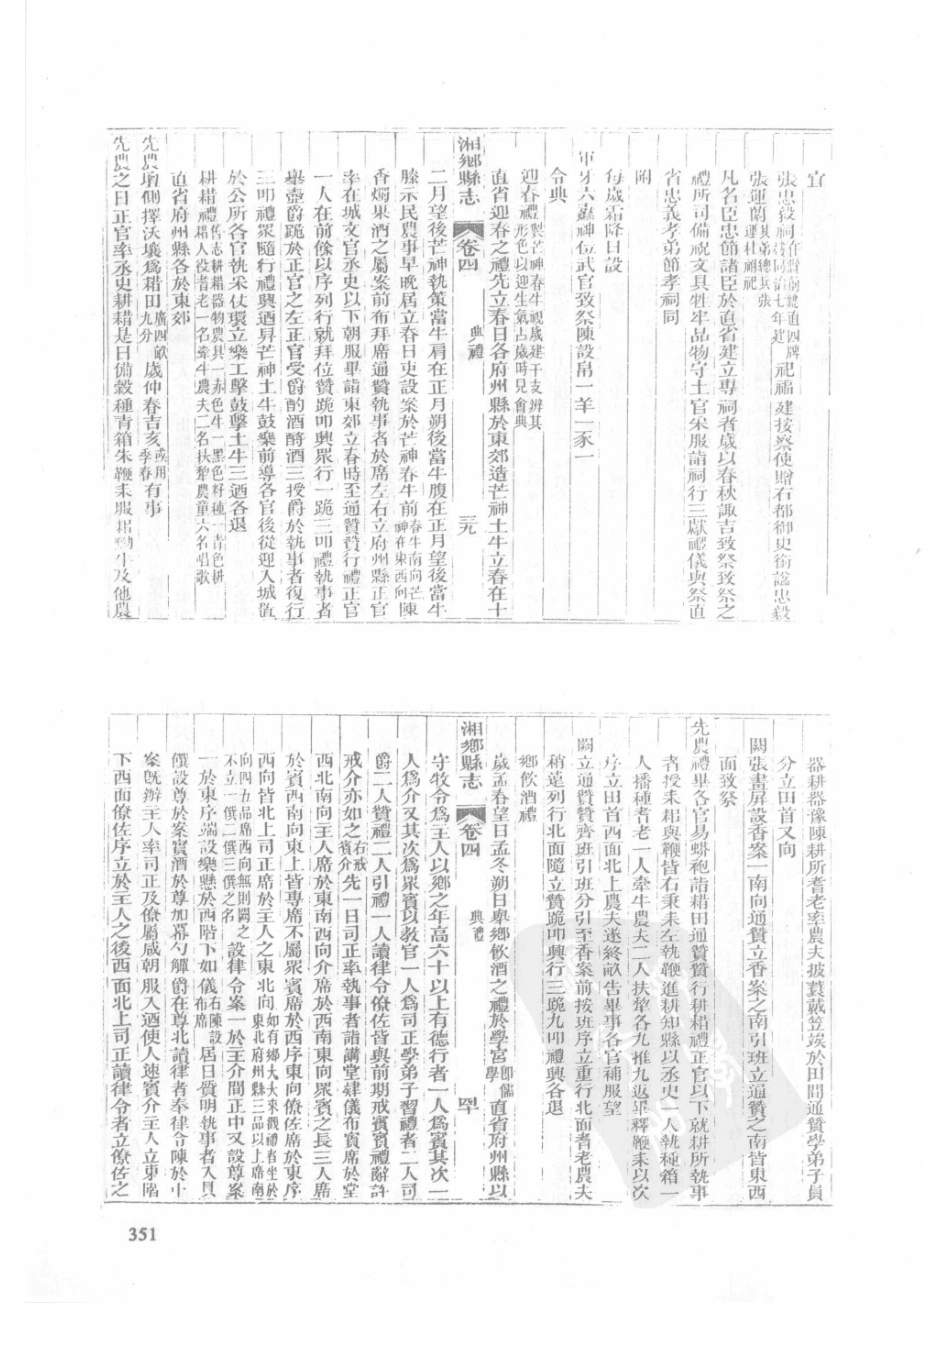 宜
張忠毅祠祀福建按察使贈右都御史銜諡忠毅
張運蘭其弟總兵張運桂祔祀
凡名臣忠節諸臣於直省建立專祠者歲以春秋諏吉致祭致祭之
禮所司備祝文具牲牢品物守土官朱服詣祠行三獻禮儀與祭直
省忠義孝弟節孝祠同
附
每歲霜降日設
軍牙六纛神位武官致祭陳設帛一羊一豕一
令典
迎春禮製芒神春牛視歲建干支辨其形色以迎生氣占歲時見會典
直省迎春之禮先立春日各府州縣於東郊造芒神土牛立春在十
湘鄉縣志 卷四 典禮 三九
二月望後芒神執策當牛肩在正月朔後當牛腹在正月望後當牛
膝示民農事早晚屆立春日吏設案於芒神春牛前春牛南向芒神在東西向陳
香燭果酒之屬案前布拜席通贊執事者於席左右立府州縣正官
率在城文官丞史以下朝服畢詣東郊立春時至通贊贊行禮正官
一人在前餘以序列行就拜位贊跪叩興眾行一跪三叩禮執事者
舉壺爵跪於正官之左正官受爵酌酒酹酒三授爵於執事者復行
三叩禮眾隨行禮興迺舁芒神土牛鼓樂前導各官後從迎入城置
於公所各官執采仗環立樂工擊鼓擊土牛三迺各退
耕耤禮舊志耕耤器物農具一赤色牛一黑色籽種一青色耕耤人役耆老一名牽牛農夫二名扶犂農童六名唱歌
直省府州縣各於東郊
先農壇側擇沃壤為耤田廣四畝九分歲仲春吉亥或用季春有事
先農之日正官率丞史耕耤是日備穀種青箱朱鞭耒服耜黝牛及他農
器耕器豫陳耕所耆老率農夫披蓑戴笠竢於田間通贊學弟子員
分立田首又向
闕張畫屏設香案一南向通贊立香案之南引班立通贊之南皆東西
面致祭
先農禮畢各官易蟒袍詣耤田通贊贊行耕耤禮正官以下就耕所執事
者授耒耜與鞭皆右秉耒左執鞭進耕知縣以丞史一人執種箱一
人播種耆老一人牽牛農夫二人扶犂各九推九返畢釋鞭耒以次
序立田首西面北上農夫遂終畝告畢事各官補服望
闕立通贊贊齊班引班分引至香案前按班序立重行北面耆老農夫
稍遠列行北面隨立贊跪叩興行三跪九叩禮興各退
鄉飲酒禮
歲孟春望日孟冬朔日舉鄉飲酒之禮於學宮即儒學直省府州縣以
湘鄉縣志 卷四 典禮 四十
守牧令為主人以鄉之年高六十以上有德行者一人為賓其次一
人為介又其次為眾賓以教官一人為司正學弟子習禮者二人司
爵二人贊禮二人引禮一人讀律令僚佐皆與前期戒賓賓禮辭許
戒介亦如之右戒賓介先一日司正率執事者詣講堂肄儀布賓席於堂
西北南向主人席於東南西向介席於西南東向眾賓之長三人席
於賓西南向東上皆專席不屬眾賓席於西序東向僚佐席於東序
西向皆北上司正席於主人之東北向如有鄉大夫來觀禮者坐於東北府州縣三品以上席南向四五品席西向無則闕之不立一僎二僎三僎之名設律令案一於主介間正中又設尊案
一於東序端設樂懸於西階下如儀右陳設布席屆日質明執事者入具
饌設尊於案實酒於尊加冪勺觶爵在尊北讀律者奉律令陳於中
案既辦主人率司正及僚屬咸朝服入迺使人速賓介主人立東階
下西面僚佐序立於主人之後西面北上司正讀律令者立僚佐之
351